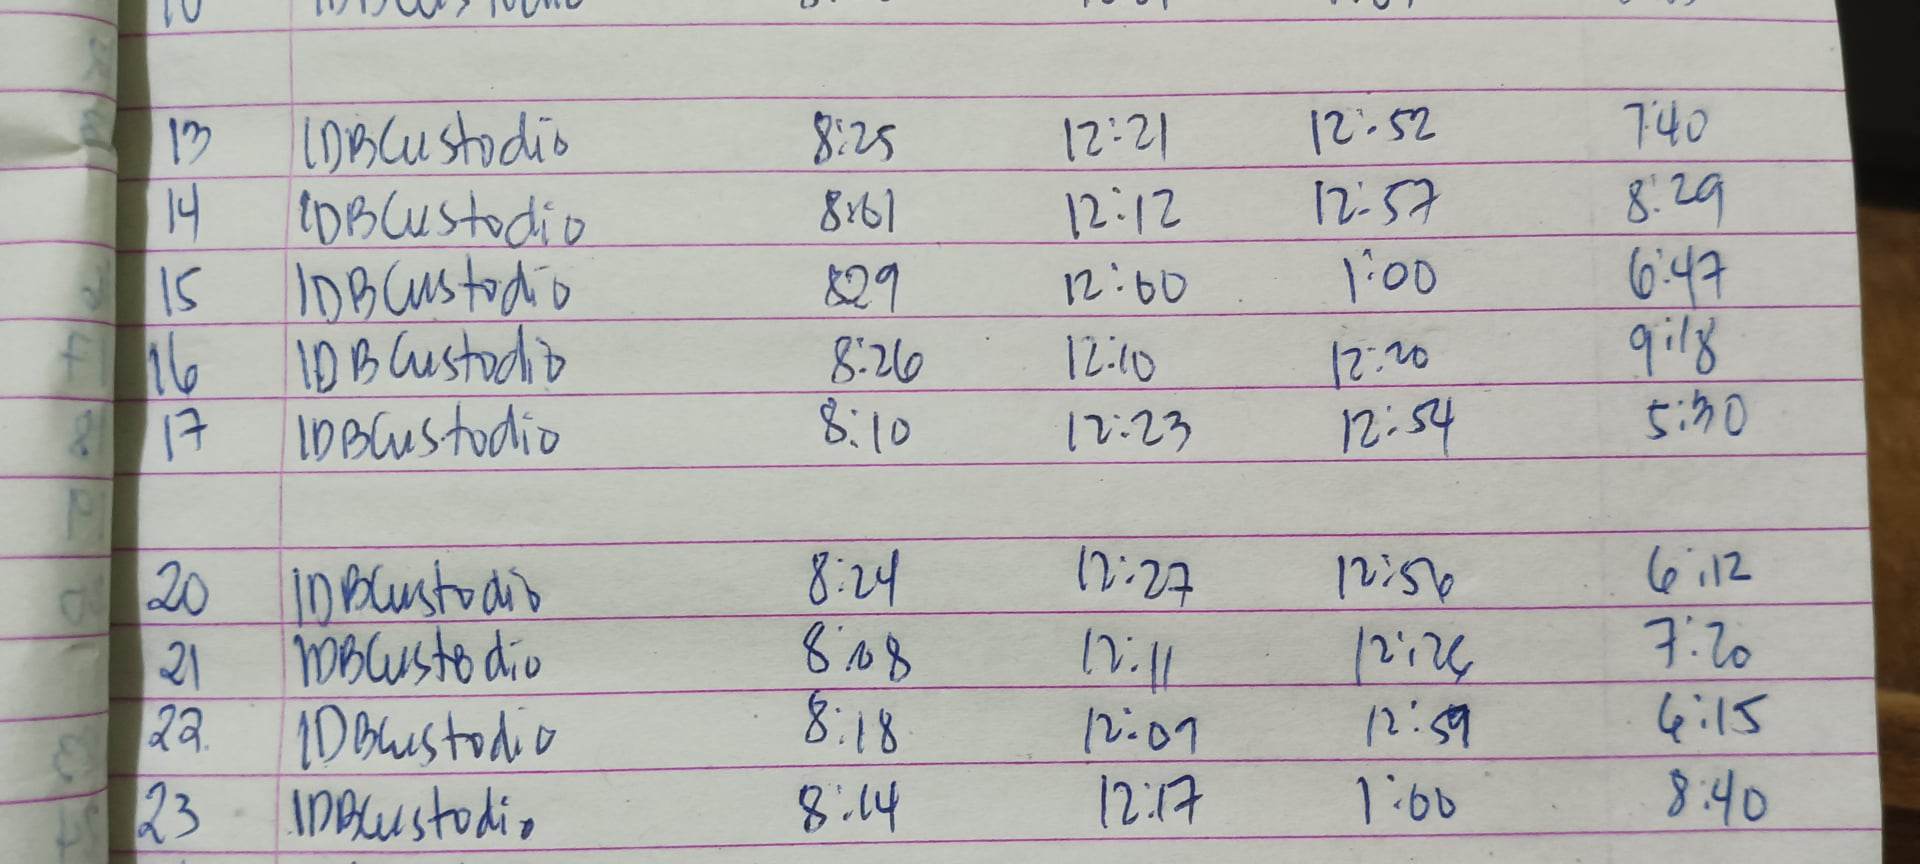 13 IDBCustodio 8:25 12:21 12:52 7:40
14 IDBCustodio 8:01 12:12 12:57 8:29
15 IDBCustodio 829 12:00 1:00 6:47
16 IDBCustodio 8:26 12:10 12:20 9:18
17 IDBCustodio 8:10 12:23 12:54 5:30
20 IDBCustodio 8:24 12:27 12:56 6:12
21 IDBCustodio 8:08 12:11 12:26 7:20
22. IDBCustodio 8:18 12:09 12:59 6:15
23 IDBCustodio 8:14 12:17 1:00 8:40